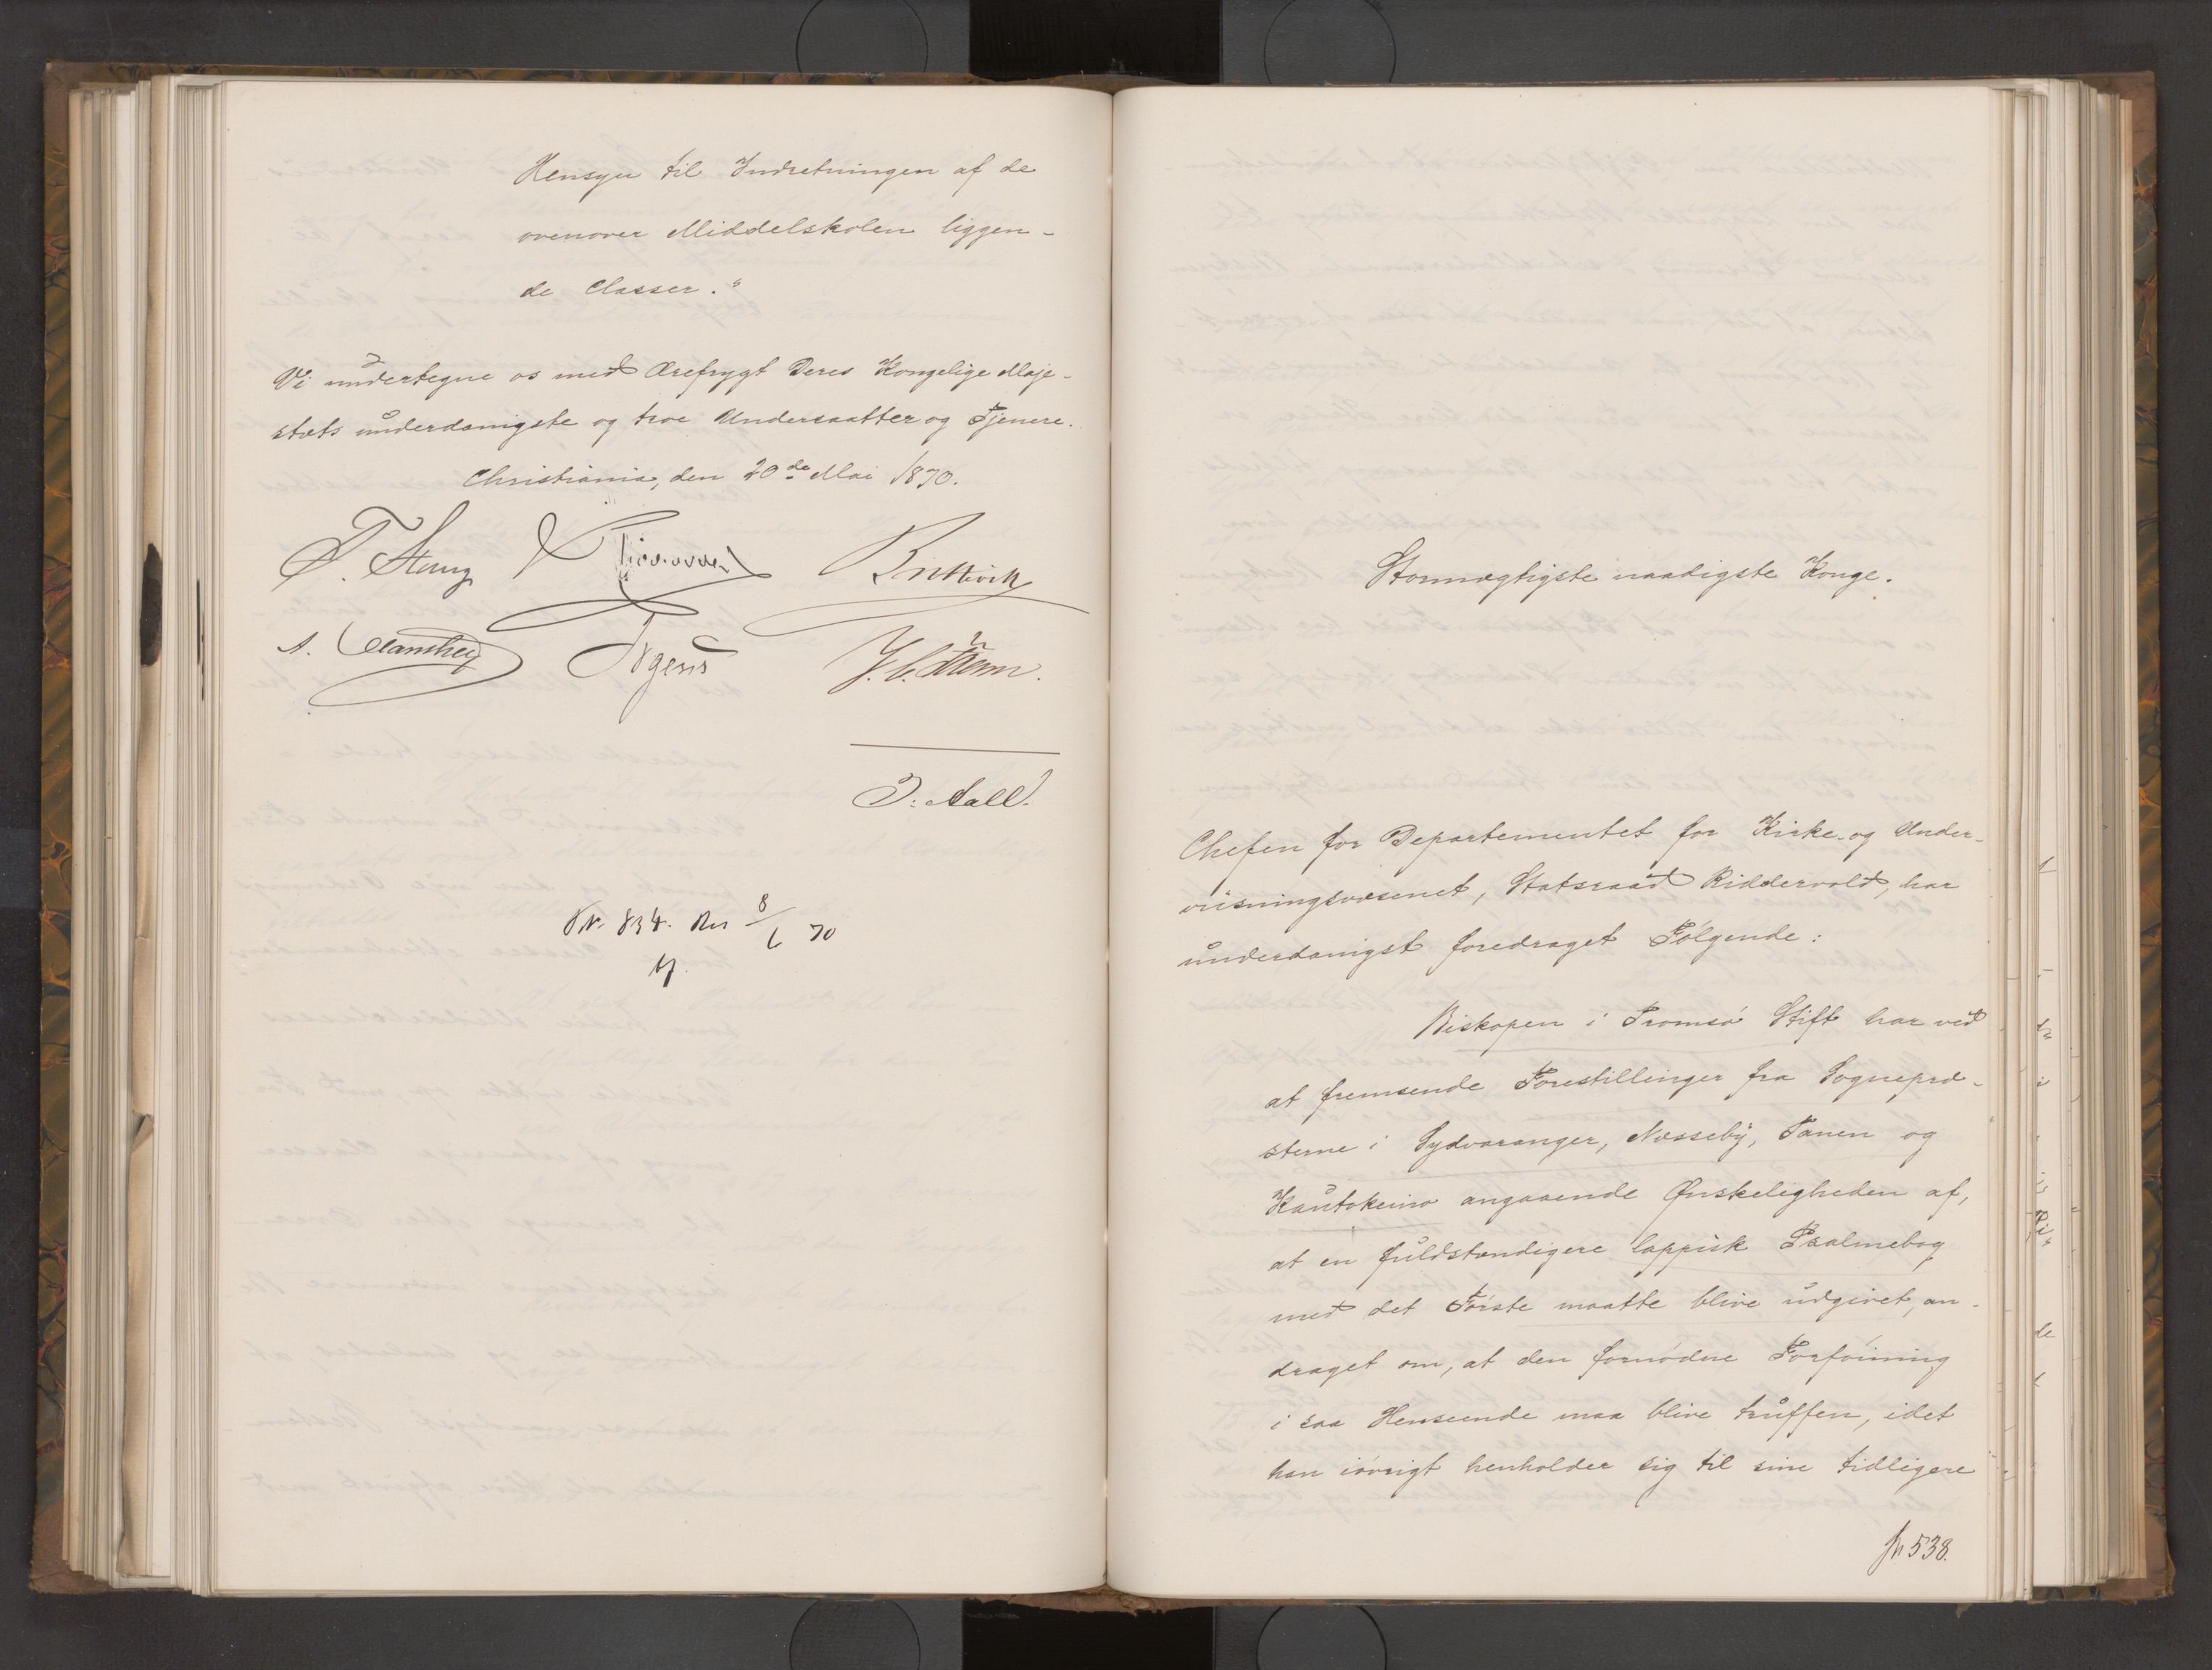 Hensyn til Indretningen af de
ovenover Middelskolen liggen-
de Classer."
Vi undertegne os med Ærefrygt Deres Kongelige Maje-
stæts underdanigste og troe Undersaatter og Tjenere.
Christiania, den 20de Mai 1870.
F. Stang
Irgens
J. Aall.
No. 834. 8/6 70
Stormægtigste naadigste Konge.
Chefen for Departementet for Kirke- og Under-
viisningsvæsenet, Statsraad Riddervold, har
underdanigst foredraget Følgende:
Biskopen i Tromsø Stift har ved
at fremsende Forestillinger fra Sognepræ-
sterne i Sydvaranger, Næsseby, Tanen og
Kautokeino angaaende Ønskeligheden af,
at en fuldstændigere lappisk Psalmebog
med det Første maatte blive udgivet, an-
draget om, at den fornødne Forføining
i saa Henseende maa blive truffen, idet
han iøvrigt henholder sig til sine tidligere
538.